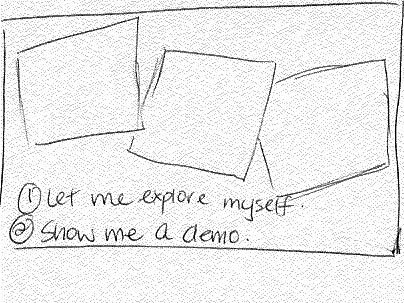 ① Let me explore myself.
② Show me a demo.